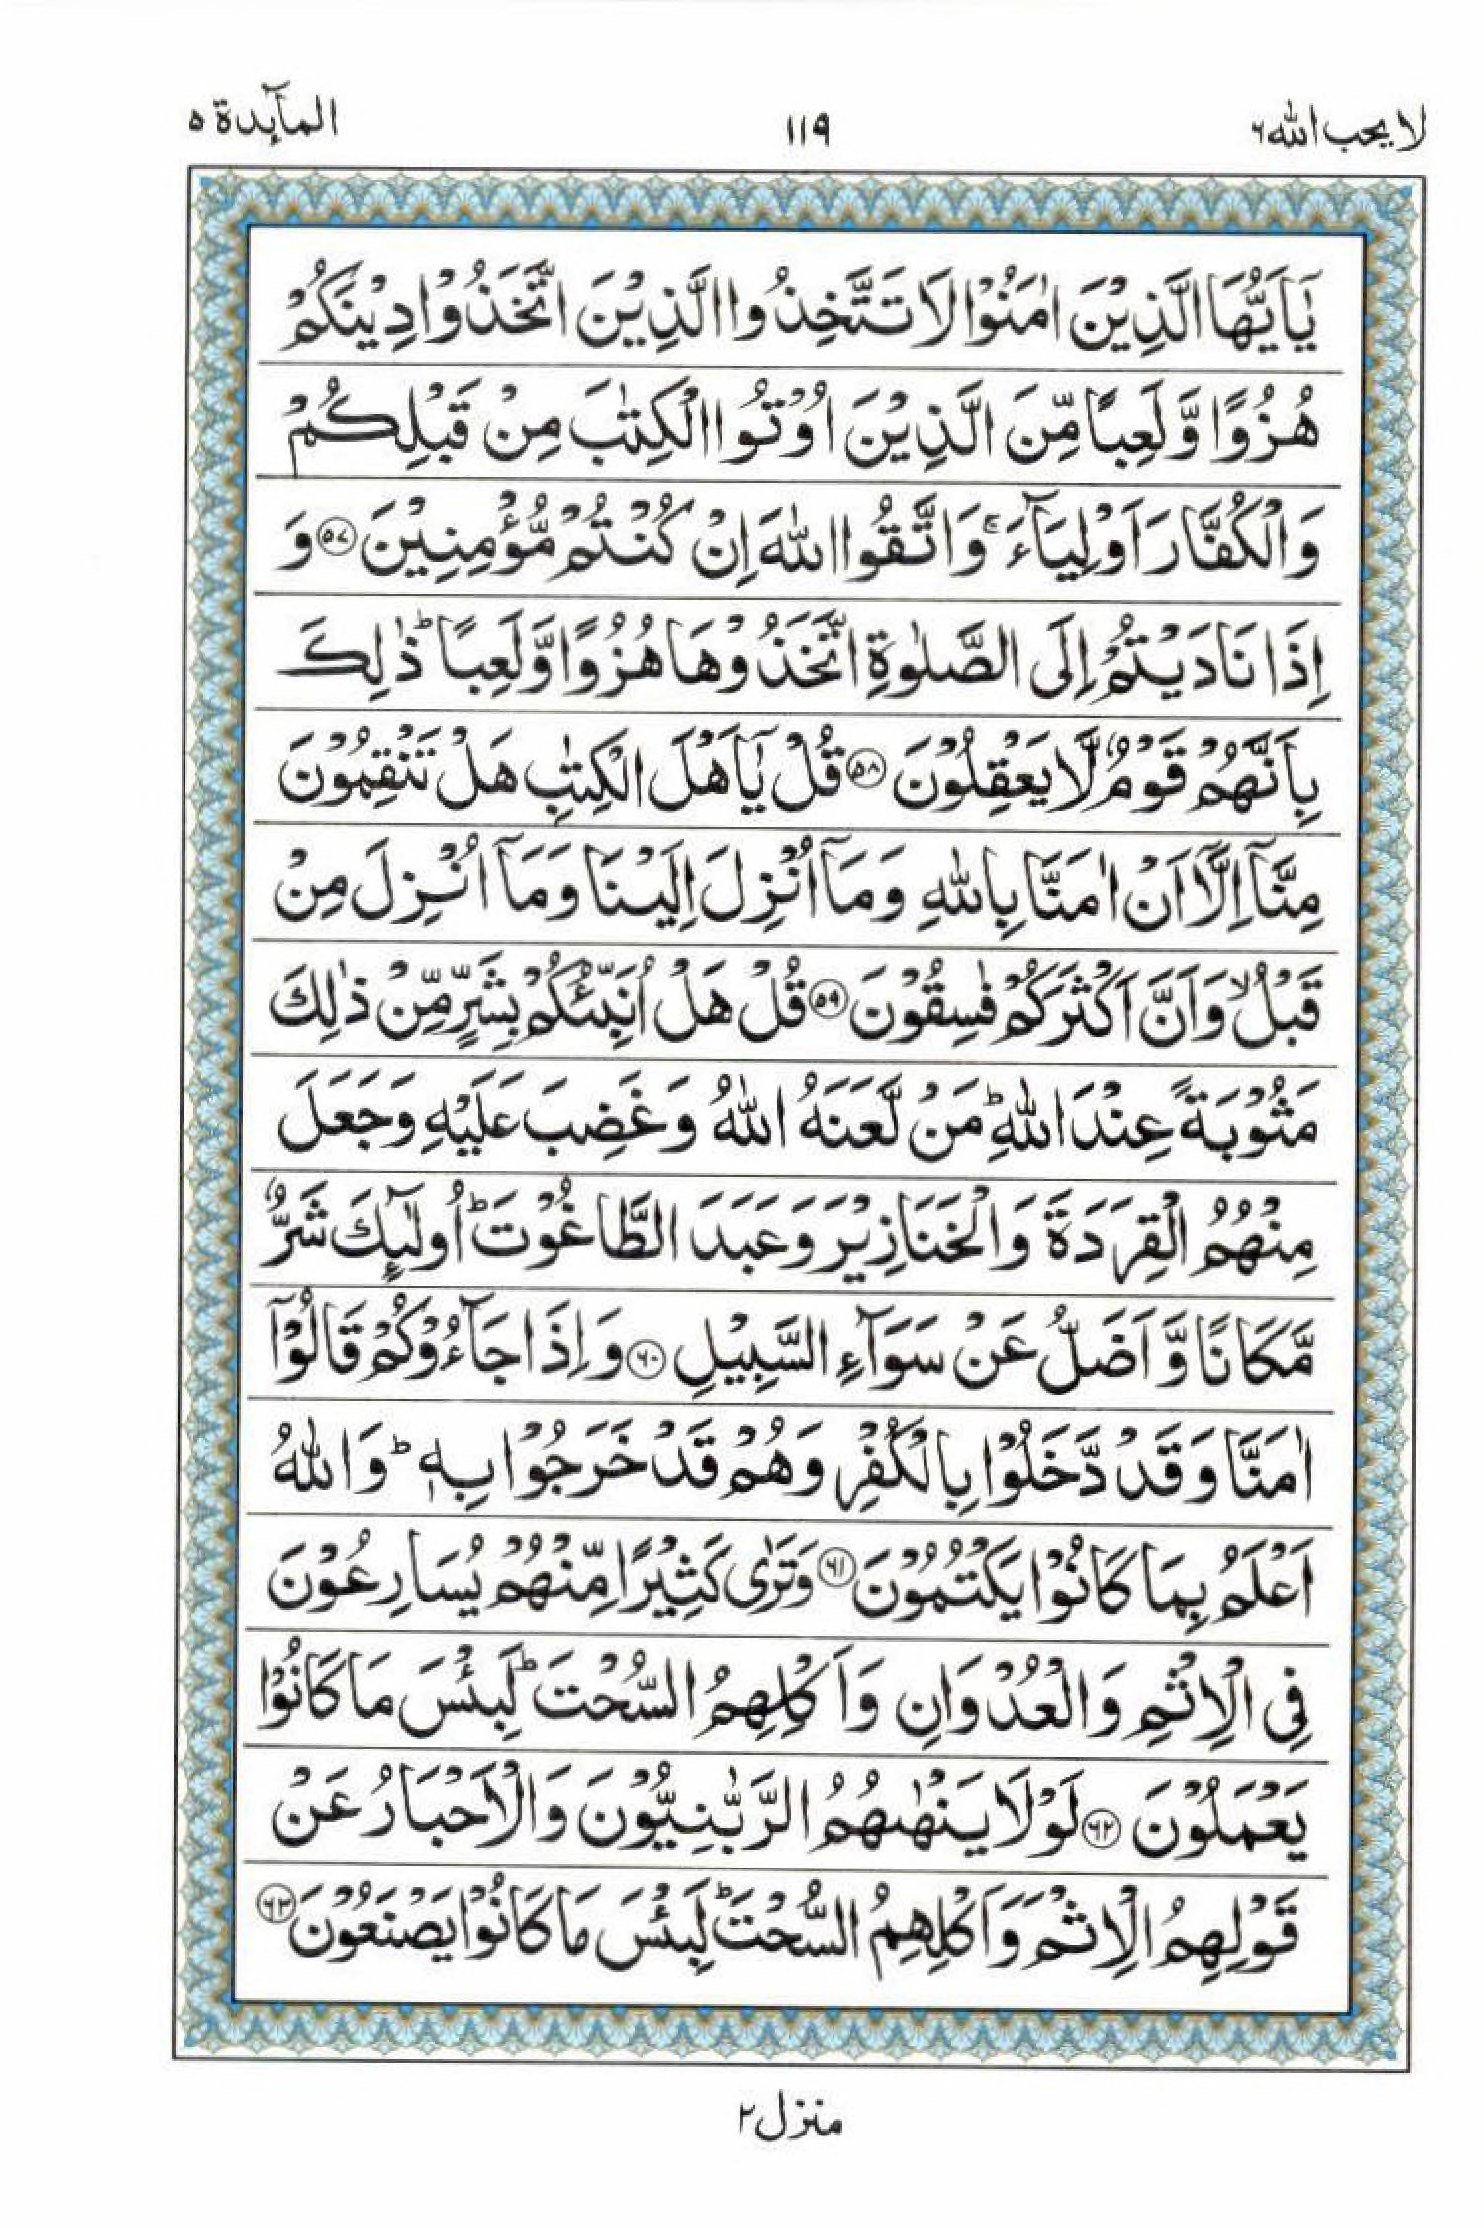 لا يحب الله ٦
١١٩
المآىِٕدة ٥
يٰۤاَيُّهَا الَّذِيْنَ اٰمَنُوْا لَا تَتَّخِذُوا الَّذِيْنَ اتَّخَذُوْا دِيْنَكُمْ
هُزُوًا وَّلَعِبًا مِّنَ الَّذِيْنَ اُوْتُوا الْكِتٰبَ مِنْ قَبْلِكُمْ
وَالْكُفَّارَ اَوْلِيَآءَ ۚ وَاتَّقُوا اللّٰهَ اِنْ كُنْتُمْ مُّؤْمِنِيْنَ ﴿۵۷﴾ وَ
اِذَا نَادَيْتُمْ اِلَى الصَّلٰوةِ اتَّخَذُوْهَا هُزُوًا وَّلَعِبًا ؕ ذٰلِكَ
بِاَنَّهُمْ قَوْمٌ لَّا يَعْقِلُوْنَ ﴿۵۸﴾ قُلْ يٰۤاَهْلَ الْكِتٰبِ هَلْ تَنْقِمُوْنَ
مِنَّاۤ اِلَّاۤ اَنْ اٰمَنَّا بِاللّٰهِ وَمَاۤ اُنْزِلَ اِلَيْنَا وَمَاۤ اُنْزِلَ مِنْ
قَبْلُ ۙ وَاَنَّ اَكْثَرَكُمْ فٰسِقُوْنَ ﴿۵۹﴾ قُلْ هَلْ اُنَبِّئُكُمْ بِشَرٍّ مِّنْ ذٰلِكَ
مَثُوْبَةً عِنْدَ اللّٰهِ ؕ مَنْ لَّعَنَهُ اللّٰهُ وَغَضِبَ عَلَيْهِ وَجَعَلَ
مِنْهُمُ الْقِرَدَةَ وَالْخَنَازِيْرَ وَعَبَدَ الطَّاغُوْتَ ؕ اُولٰٓىِٕكَ شَرٌّ
مَّكَانًا وَّاَضَلُّ عَنْ سَوَآءِ السَّبِيْلِ ﴿۶۰﴾ وَاِذَا جَآءُوْكُمْ قَالُوْۤا
اٰمَنَّا وَقَدْ دَّخَلُوْا بِالْكُفْرِ وَهُمْ قَدْ خَرَجُوْا بِهٖ ؕ وَاللّٰهُ
اَعْلَمُ بِمَا كَانُوْا يَكْتُمُوْنَ ﴿۶۱﴾ وَتَرٰى كَثِيْرًا مِّنْهُمْ يُسَارِعُوْنَ
فِى الْاِثْمِ وَالْعُدْوَانِ وَاَكْلِهِمُ السُّحْتَ ؕ لَبِئْسَ مَا كَانُوْا
يَعْمَلُوْنَ ﴿۶۲﴾ لَوْلَا يَنْهٰىهُمُ الرَّبّٰنِيُّوْنَ وَالْاَحْبَارُ عَنْ
قَوْلِهِمُ الْاِثْمَ وَاَكْلِهِمُ السُّحْتَ ؕ لَبِئْسَ مَا كَانُوْا يَصْنَعُوْنَ ﴿۶۳﴾
منزل ٢